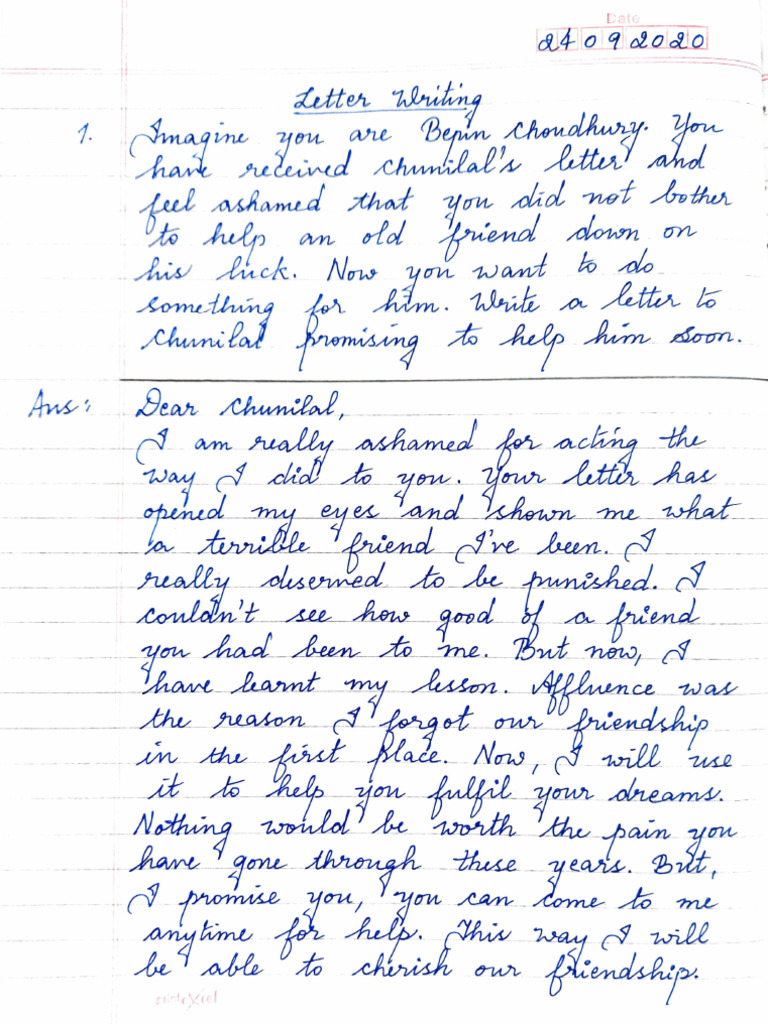 Date
24 09 2020
Letter Writing
1. Imagine you are Bepin Choudhury. You
have received Chunilal's letter and
feel ashamed that you did not bother
to help an old friend down on
his luck. Now you want to do
something for him. Write a letter to
Chunilal promising to help him soon.
Ans: Dear Chunilal,
I am really ashamed for acting the
way I did to you. Your letter has
opened my eyes and shown me what
a terrible friend I've been. I
really deserved to be punished. I
couldn't see how good of a friend
you had been to me. But now, I
have learnt my lesson. Affluence was
the reason I forgot our friendship
in the first place. Now, I will use
it to help you fulfil your dreams.
Nothing would be worth the pain you
have gone through these years. But,
I promise you, you can come to me
anytime for help. This way I will
be able to cherish our friendship.